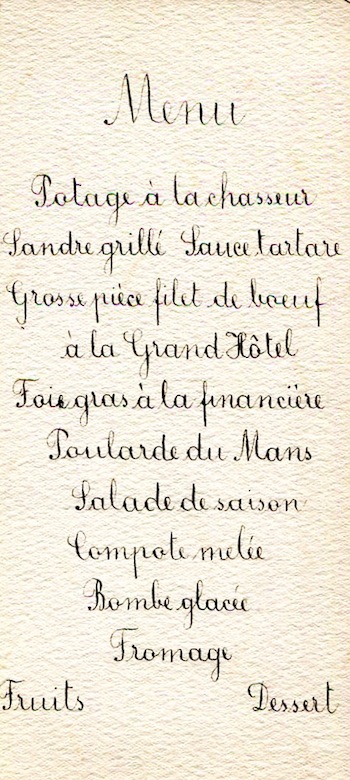 Menu
Potage à la chasseur
Sandre grillé Sauce tartare
Grosse pièce filet de boeuf
à la Grand Hôtel
Foie gras à la financière
Poularde du Mans
Salade de saison
Compote melée
Bombe glacée
Fromage
Fruits Dessert